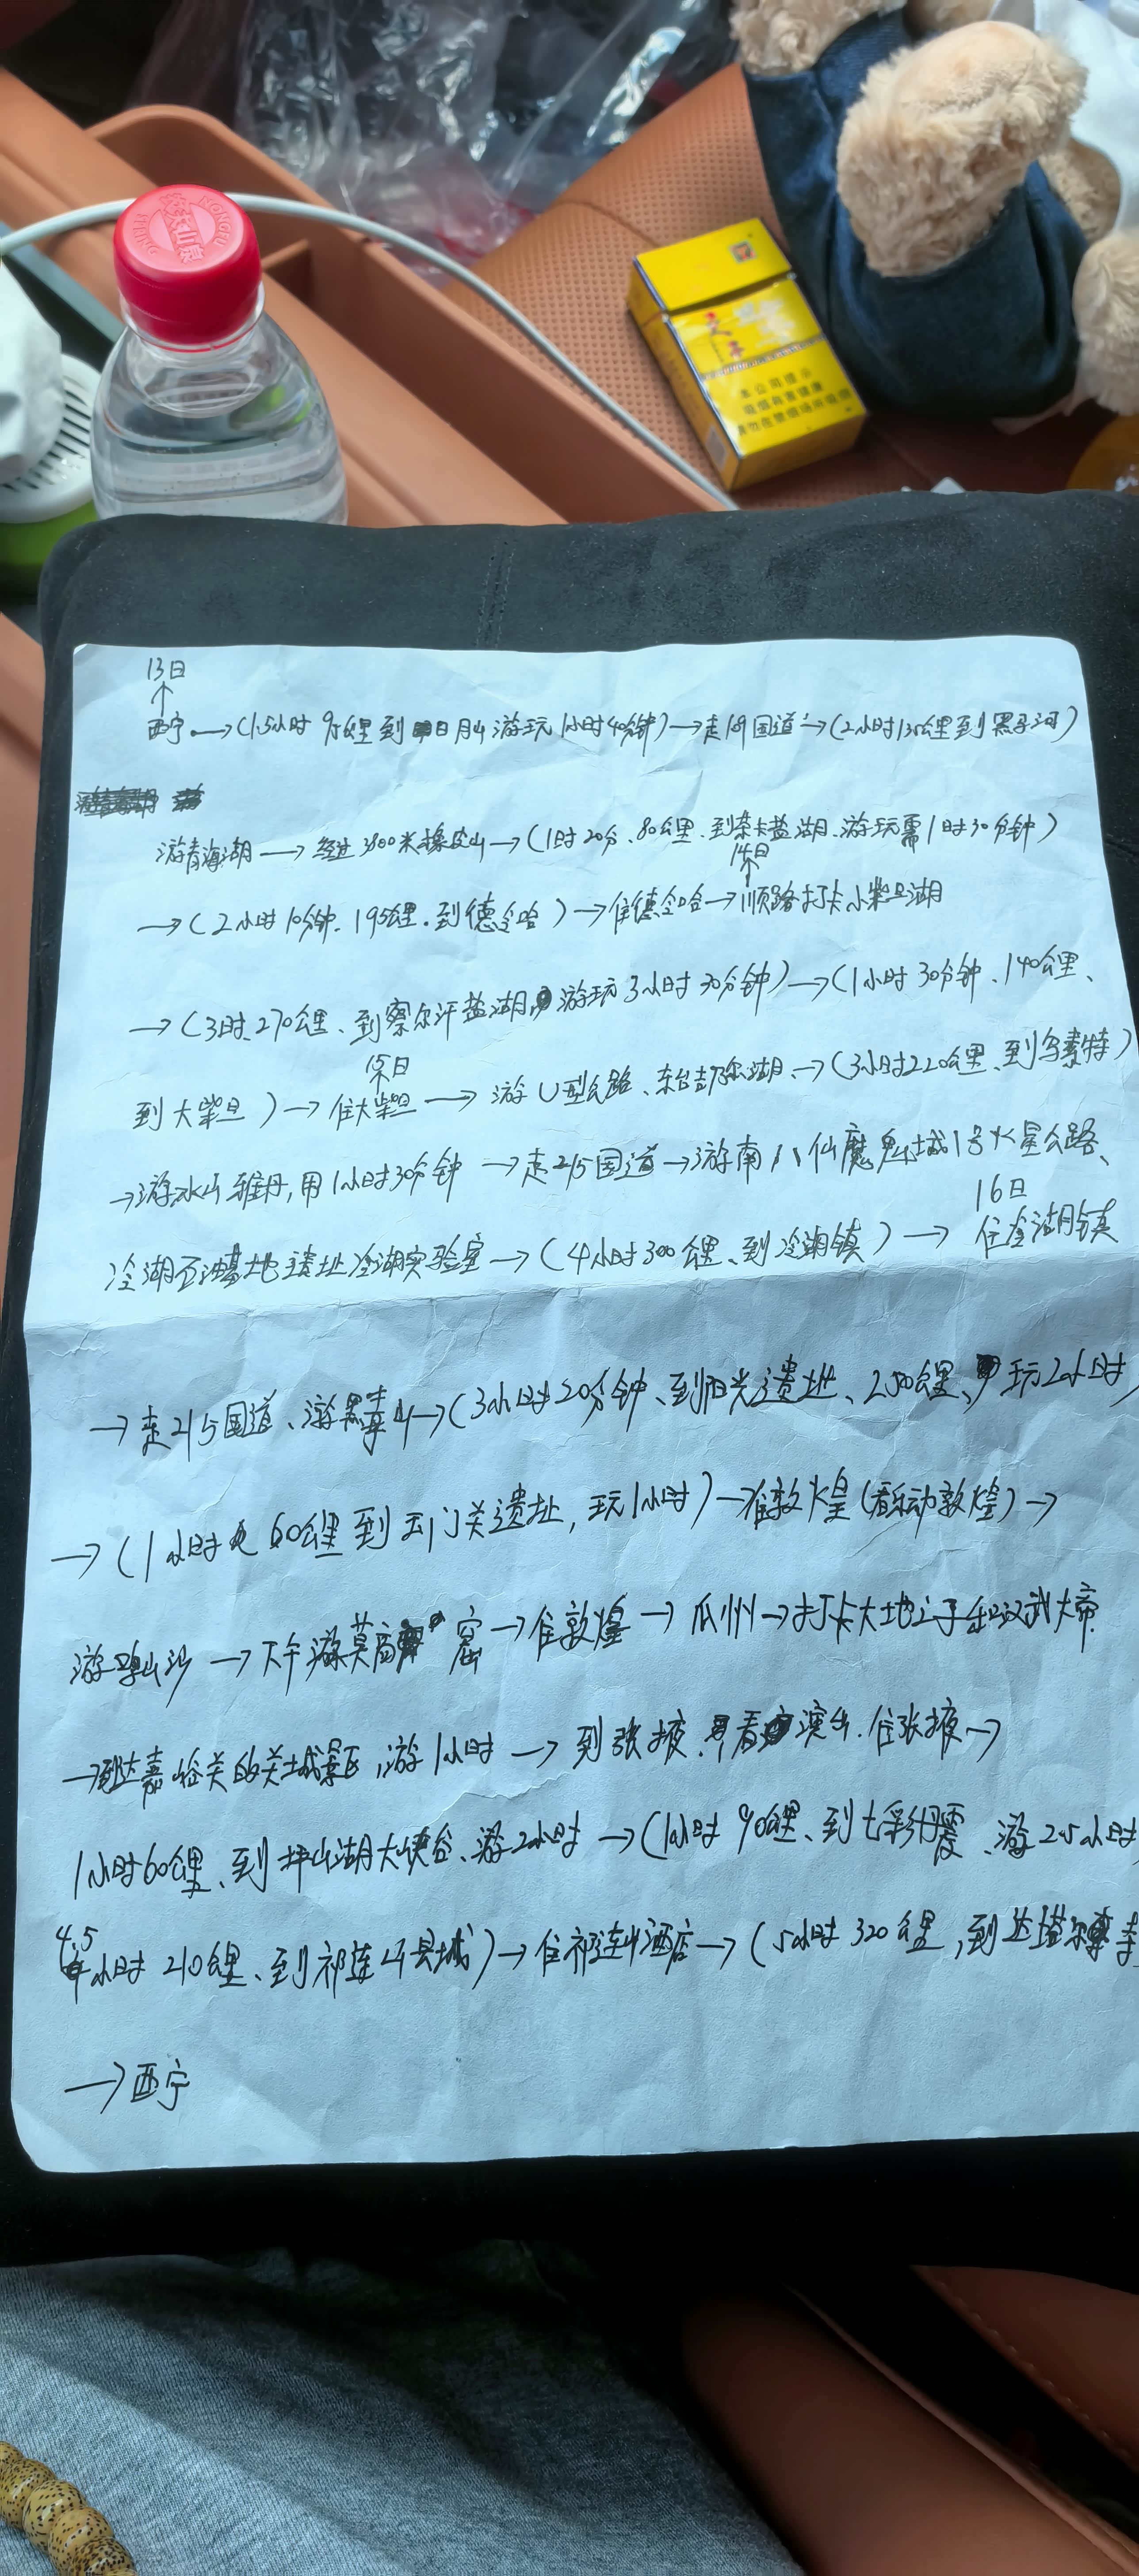 农夫山泉
NONGFU
本公司提示
吸烟有害健康
请勿在禁烟场所吸烟
13日
↑
西宁→(1.5小时 95公里到日月山游玩1小时40分钟)→走109国道→(2小时135公里到黑马河)
游青海湖→经过3800米橡皮山→(1时20分、80公里、到茶卡盐湖、游玩需1时30分钟)
14日
→(2小时10分钟、195公里、到德令哈)→住德令哈→顺路打卡小柴旦湖
→(3时、270公里、到察尔汗盐湖、游玩3小时30分钟)→(1小时30分钟、140公里、
15日
到大柴旦)→住大柴旦→游U型公路、东台吉乃尔湖、→(3小时220公里、到乌素特)
→游水山雅丹,用1小时30分钟→走215国道→游南八仙魔鬼城1号火星公路、
16日
冷湖石油基地遗址冷湖实验室→(4小时300公里、到冷湖镇)→住冷湖镇
→走215国道、游黑毒山→(3小时20分钟、到阳光遗址、250公里、玩2小时)
→(1小时 60公里到玉门关遗址,玩1小时)→住敦煌(看乐动敦煌)→
游鸣山沙→下午游莫高窟→住敦煌→瓜州→打卡大地之子和汉武大帝
→到达嘉峪关的关城景区,游1小时→到张掖,看演出.住张掖→
1小时60公里、到坪山湖大峡谷、游2小时→(1小时90公里、到七彩丹霞、游2.5小时
4.5小时210公里、到祁连山县城)→住祁连山酒店→(5小时320公里,到达塔尔寺
→西宁